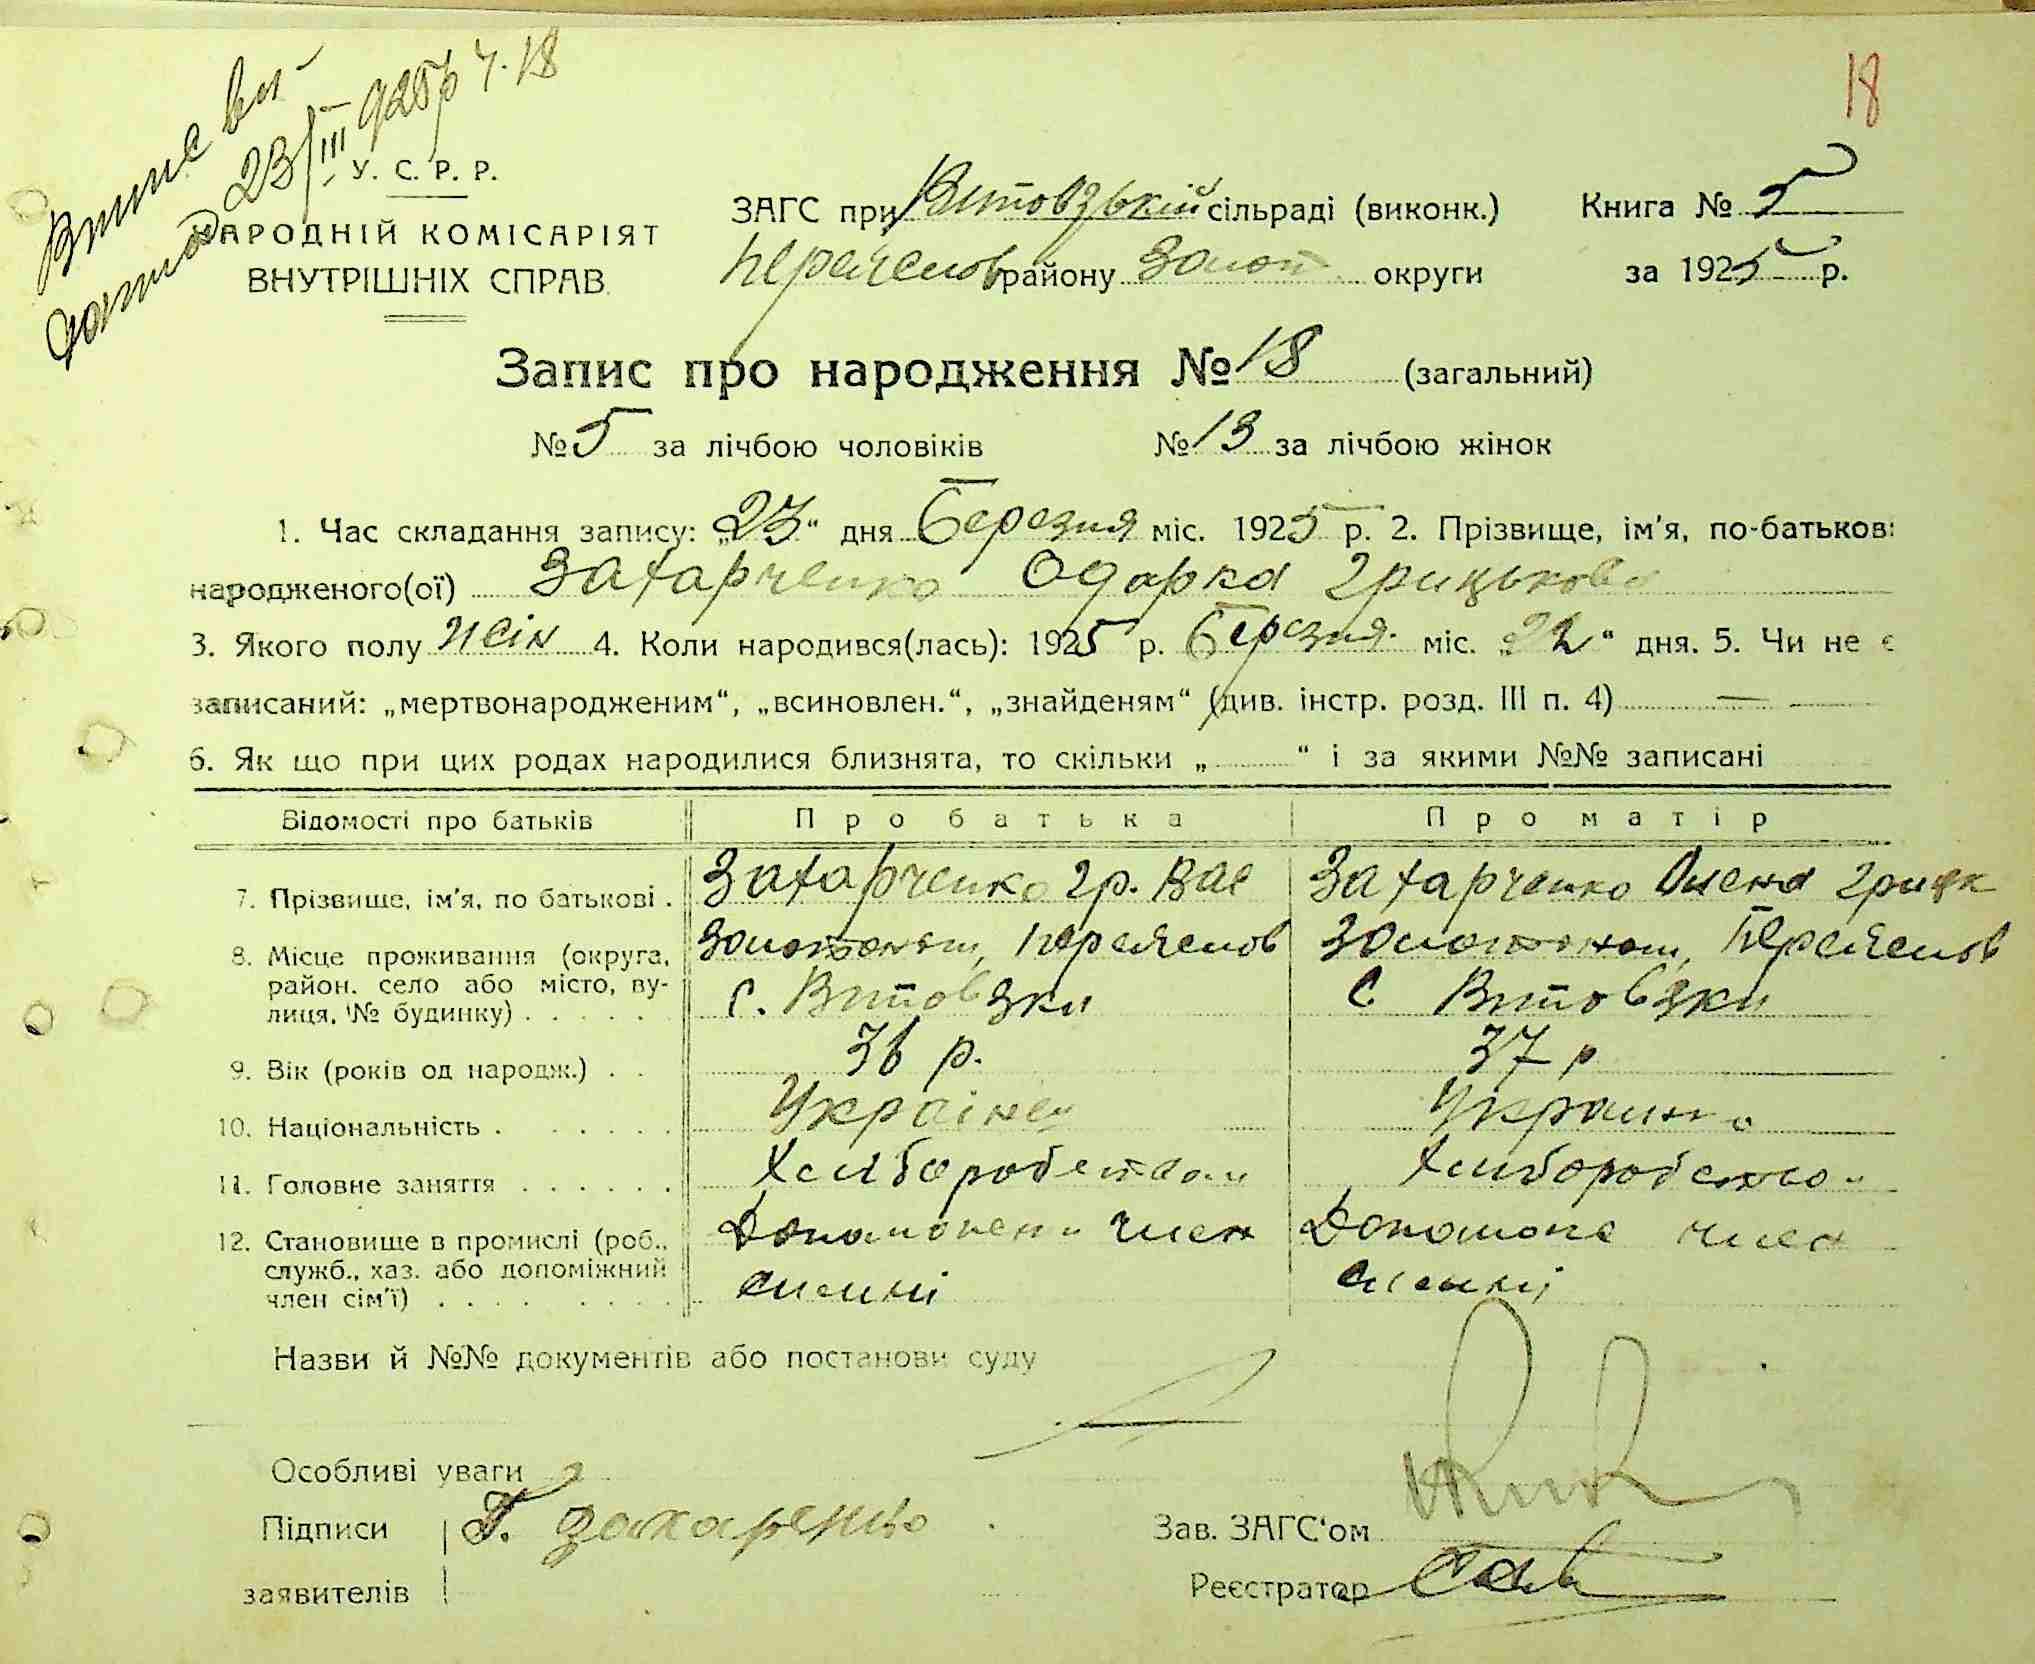 18
Виписови
датовод 23/III 925р ч. 18
У. С. Р. Р.
НАРОДНІЙ КОМІСАРІЯТ
ВНУТРІШНІХ СПРАВ.
ЗАГС при Витовзькій сільраді (виконк.) Книга № 5
Переяслов району Золот округи за 1925 р.
Запис про народження № 18 (загальний)
№ 5 за лічбою чоловіків № 13 за лічбою жінок
1. Час складання запису: „23“ дня Березня міс. 1925 р. 2. Прізвище, ім'я, по-батькові
народженого(ої) Захарченко Одарка Грицькова
3. Якого полу жін 4. Коли народився(лась): 1925 р. Березня міс. „22“ дня. 5. Чи не є
записаний: „мертвонародженим“, „всиновлен.“, „знайденям“ (див. інстр. розд. III п. 4) —
6. Як що при цих родах народилися близнята, то скільки „ “ і за якими №№ записані
Відомості про батьків Про батька Про матір
7. Прізвище, ім'я, по батькові . Захарченко Гр. Вас Захарченко Олена Грицк
8. Місце проживання (округа, район. село або місто, вулиця, № будинку) . . . . . Золотонош, Переяслов с. Витовзки Золотонош, Переяслов с Витовзки
9. Вік (років од народж.) . . 36 р. 37 р
10. Національність . . . . . . Українец Украинка
11. Головне заняття . . . . . . Хліборобством Хлиборобством
12. Становище в промислі (роб., служб., хаз. або допоміжний член сім'ї) . . . . . . . член симні Допомоне член симні
Назви й №№ документів або постанови суду
Особливі уваги
Підписи Г. Захаренко Зав. ЗАГС'ом
заявителів Реєстратор